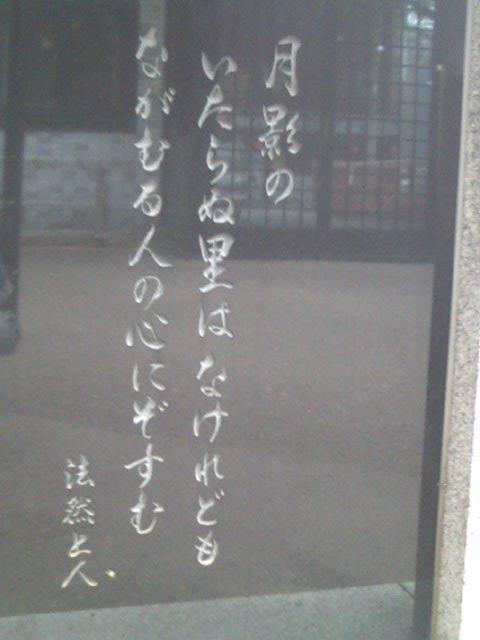 月影の
いたらぬ里はなけれども
ながむる人の心にぞすむ
法然上人